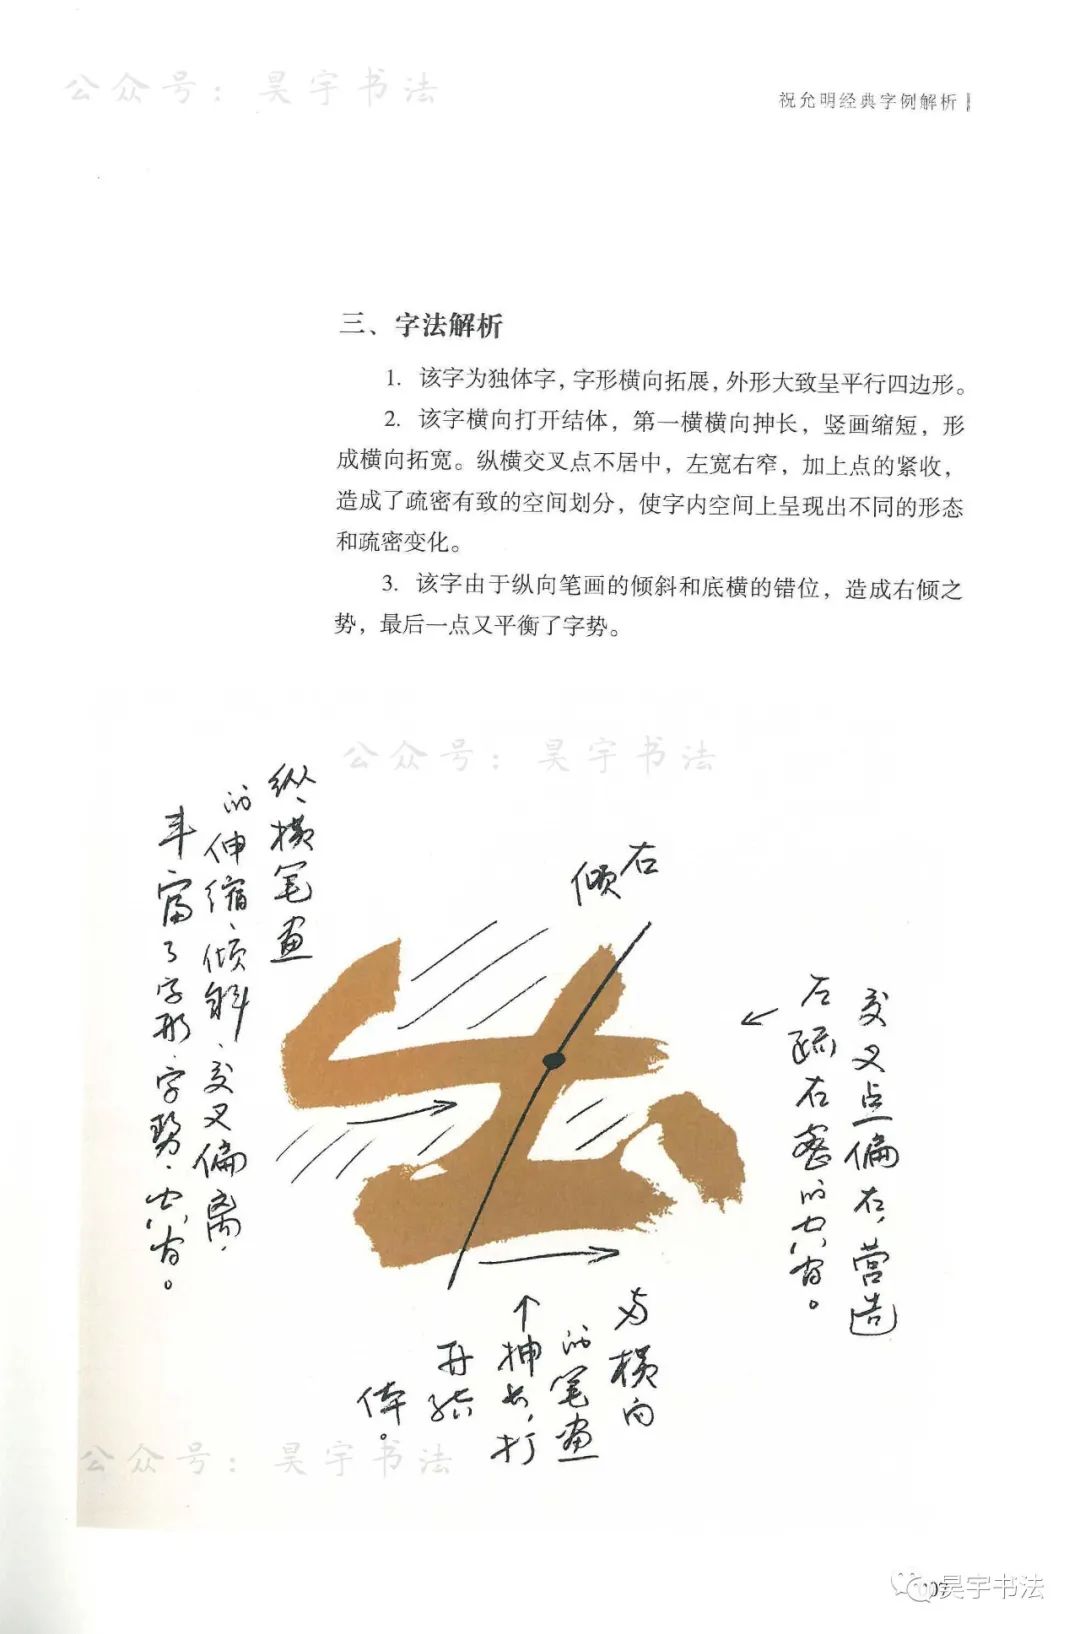 公众号：昊宇书法
祝允明经典字例解析
三、字法解析
1. 该字为独体字，字形横向拓展，外形大致呈平行四边形。
2. 该字横向打开结体，第一横横向抻长，竖画缩短，形
成横向拓宽。纵横交叉点不居中，左宽右窄，加上点的紧收，
造成了疏密有致的空间划分，使字内空间上呈现出不同的形态
和疏密变化。
3. 该字由于纵向笔画的倾斜和底横的错位，造成右倾之
势，最后一点又平衡了字势。
公众号：昊宇书法
右
倾
纵、横笔画
的伸缩、倾斜、交叉偏离，
丰富了字形、字势、空间。
交叉点偏右，营造
左疏右密的空间。
与横向
的笔画
抻长，打
开结
体。
公众号：昊宇书法
昊宇书法